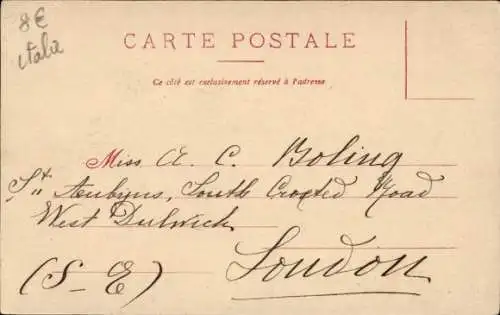 8€
italie
CARTE POSTALE
Ce côté est exclusivement réservé à l'adresse
Miss A. C. Boling
St. Aubyns, South Croxted Road
West Dulwich
(S-E) London